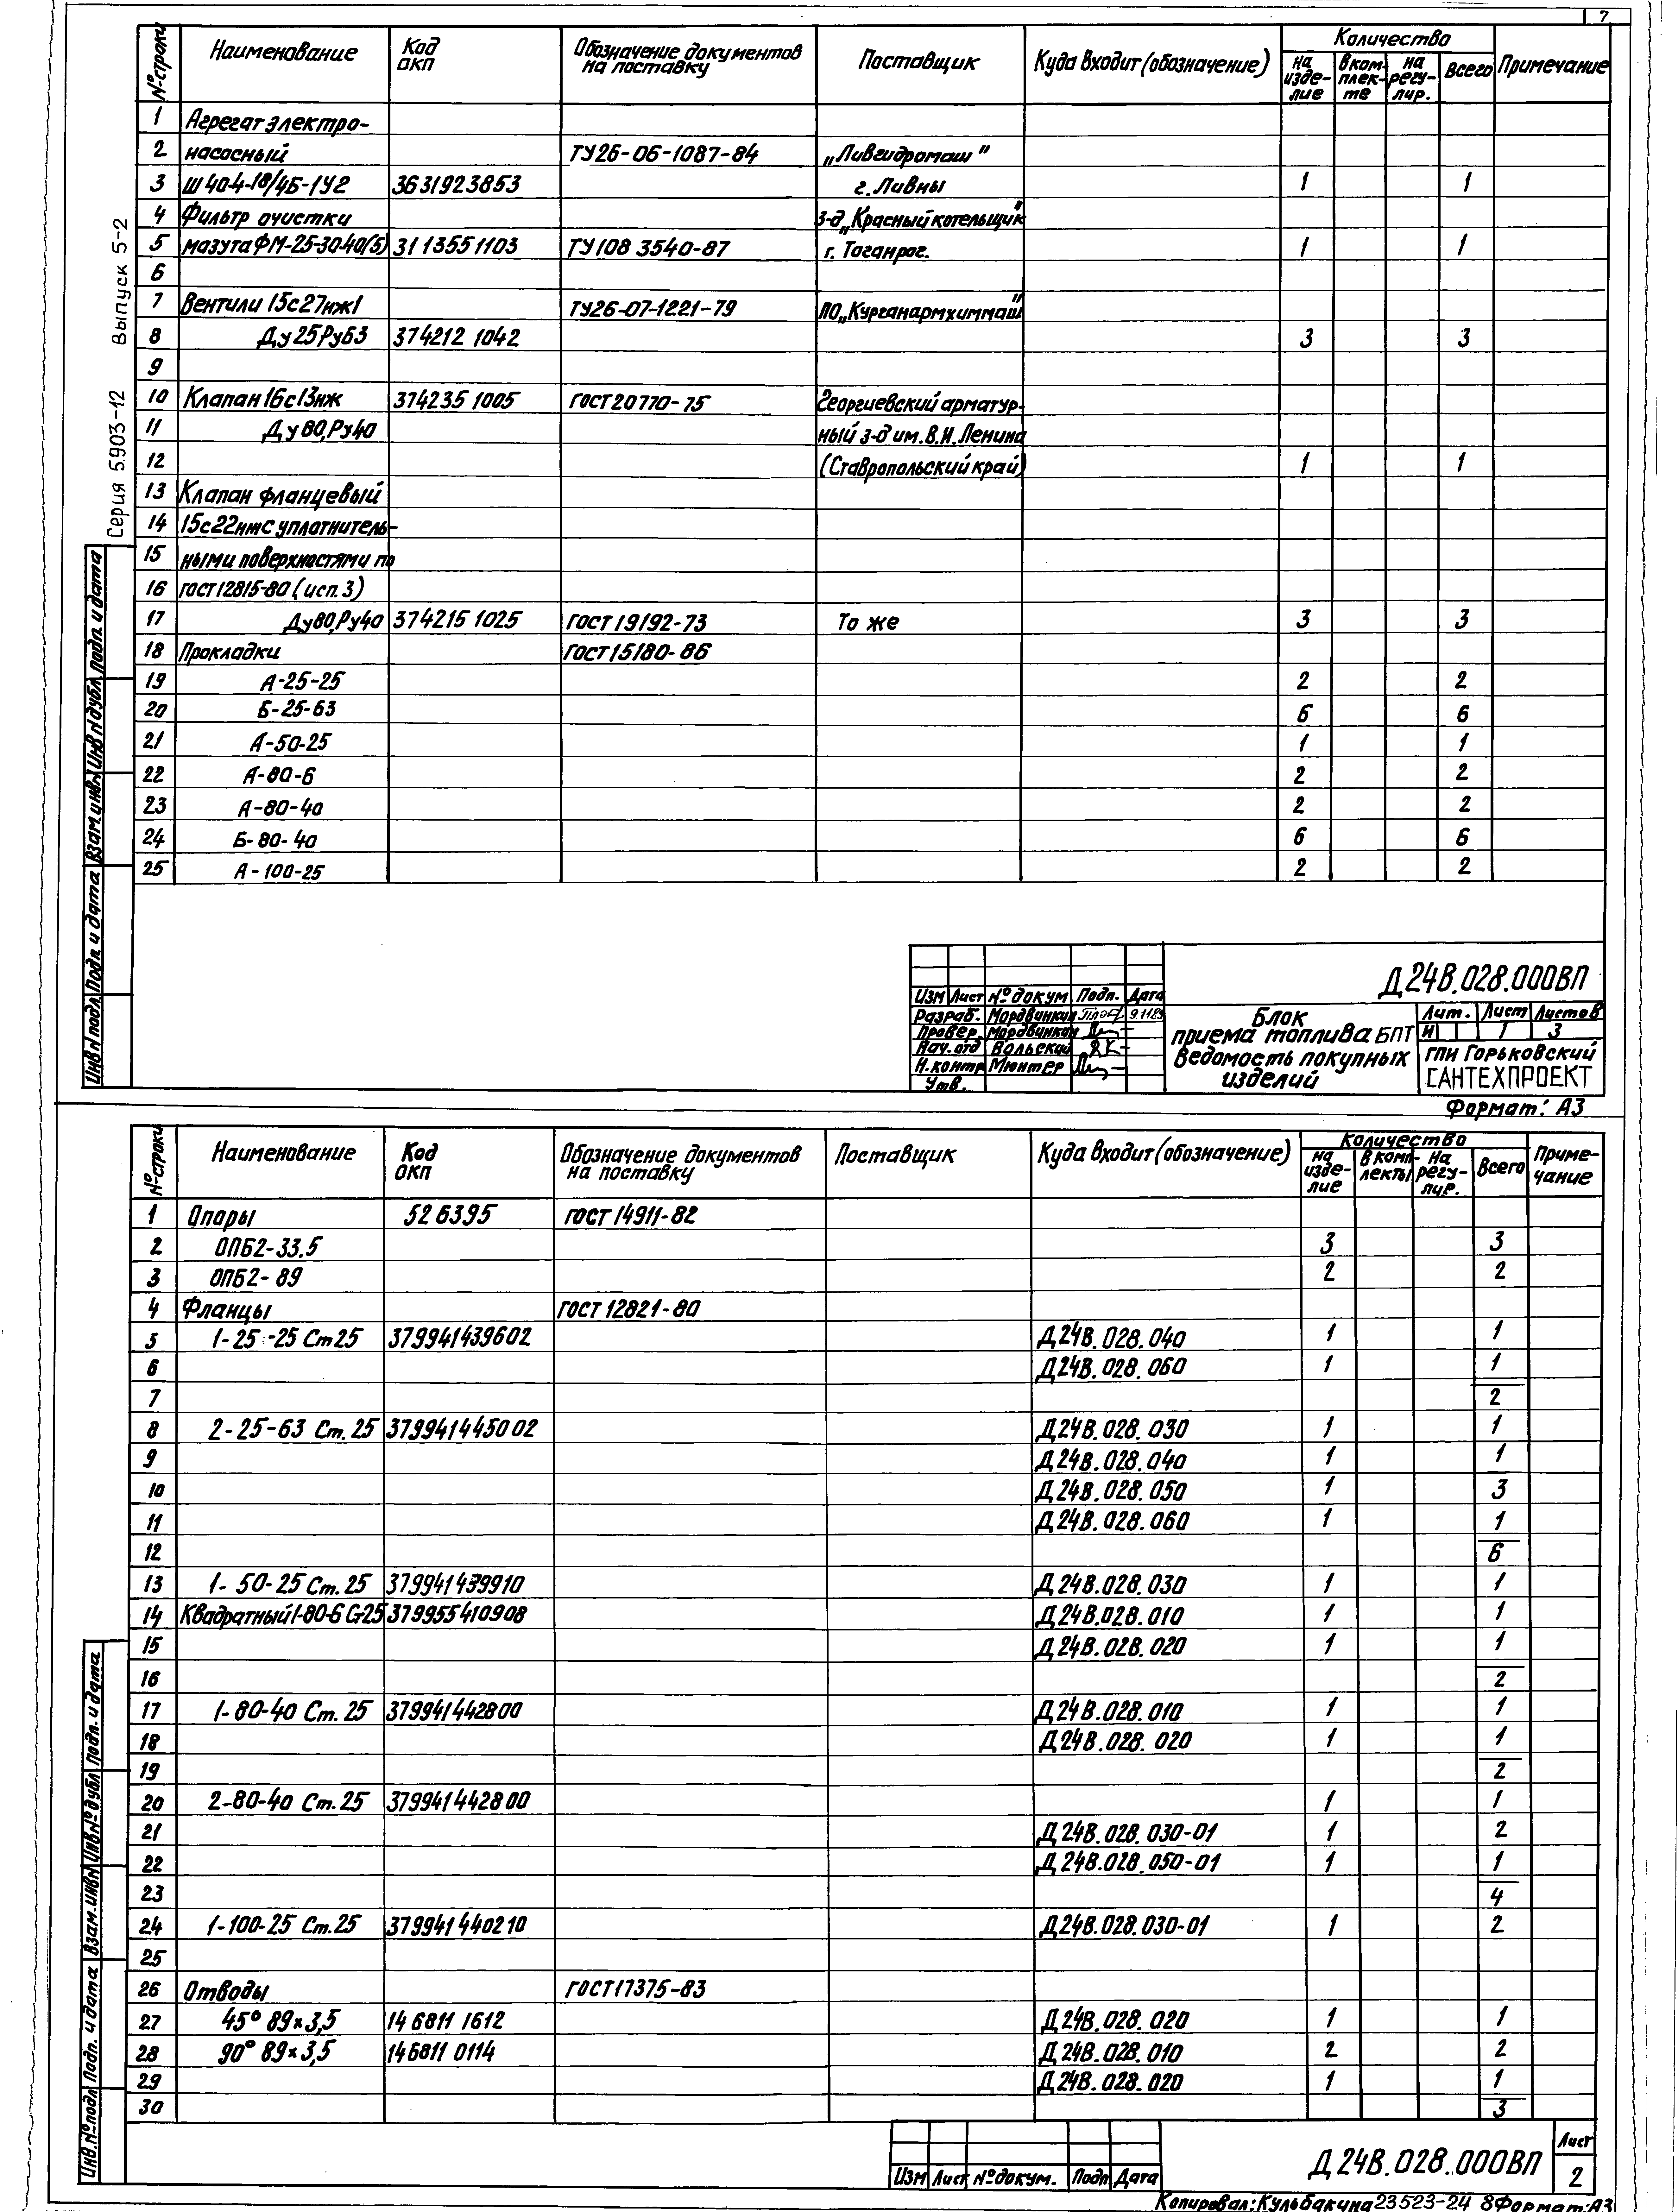 7
№ строки Наименование Код ОКП Обозначение документов на поставку Поставщик Куда входит (обозначение) Количество Примечание
на изделие в комплекте на регулир. Всего
1 Агрегат электро-
2 насосный ТУ26-06-1087-84 „Ливгидромаш"
3 Ш 40-4-18/4Б-1У2 3631923853 г. Ливны 1 1
4 Фильтр очистки з-д „Красный котельщик"
5 мазута ФМ-25-30-40(5) 31 13551103 ТУ108 3540-87 г. Таганрог. 1 1
6
7 Вентили 15с27нж1 ТУ26-07-1221-79 ПО „Курганармхиммаш"
8 Ду 25 Ру63 374212 1042 3 3
9
10 Клапан 16с13нж 374235 1005 ГОСТ 20770-75 Георгиевский арматур-
11 Ду 80, Ру40 ный з-д им. В.И. Ленина
12 (Ставропольский край) 1 1
13 Клапан фланцевый
14 15с22нж с уплотнитель-
15 ными поверхностями по
16 ГОСТ 12815-80 (исп. 3)
17 Ду80, Ру40 374215 1025 ГОСТ 19192-73 То же 3 3
18 Прокладки ГОСТ 15180-86
19 А-25-25 2 2
20 Б-25-63 6 6
21 А-50-25 1 1
22 А-80-6 2 2
23 А-80-40 2 2
24 Б-80-40 6 6
25 А-100-25 2 2
Серия 5.903-12 Выпуск 5-2
Инв № подл. Подп. и дата Взам. инв № Инв № дубл. Подп. и дата
Д 24В.028.000ВП
Изм Лист № докум Подп. Дата
Разраб. Мордвинкин 9.11.89
Провер. Мордвинкин
Нач. отд Вольский
Н. контр Мюнтер
Утв.
Блок
приема топлива БПТ
Ведомость покупных
изделий
Лит. Лист Листов
И 1 3
ГПИ Горьковский
САНТЕХПРОЕКТ
Формат: А3
№ строки Наименование Код ОКП Обозначение документов на поставку Поставщик Куда входит (обозначение) Количество Примечание
на изделие в комплекты на регулир. Всего
1 Опоры 526395 ГОСТ 14911-82
2 ОПБ2-33.5 3 3
3 ОПБ2-89 2 2
4 Фланцы ГОСТ 12821-80
5 1-25-25 Ст 25 379941439602 Д 24В.028.040 1 1
6 Д 24В.028.060 1 1
7 2
8 2-25-63 Ст. 25 379941445002 Д 24В.028.030 1 1
9 Д 24В.028.040 1 1
10 Д 24В.028.050 1 3
11 Д 24В.028.060 1 1
12 6
13 1-50-25 Ст. 25 379941439910 Д 24В.028.030 1 1
14 Квадратный 1-80-6 Ст25 379955410908 Д 24В.028.010 1 1
15 Д 24В.028.020 1 1
16 2
17 1-80-40 Ст. 25 379941442800 Д 24В.028.010 1 1
18 Д 24В.028.020 1 1
19 2
20 2-80-40 Ст. 25 379941442800 1 1
21 Д 24В.028.030-01 1 2
22 Д 24В.028.050-01 1 1
23 4
24 1-100-25 Ст. 25 379941440210 Д 24В.028.030-01 1 2
25
26 Отводы ГОСТ 17375-83
27 45° 89×3,5 14 6811 1612 Д 24В.028.020 1 1
28 90° 89×3,5 146811 0114 Д 24В.028.010 2 2
29 Д 24В.028.020 1 1
30 3
Инв. № подл Подп. и дата Взам. инв № Инв № дубл Подп. и дата
Изм Лист № докум. Подп Дата
Д 24В.028.000ВП
Лист
2
Копировал: Кульбакина 23523-24 8 Формат: А3